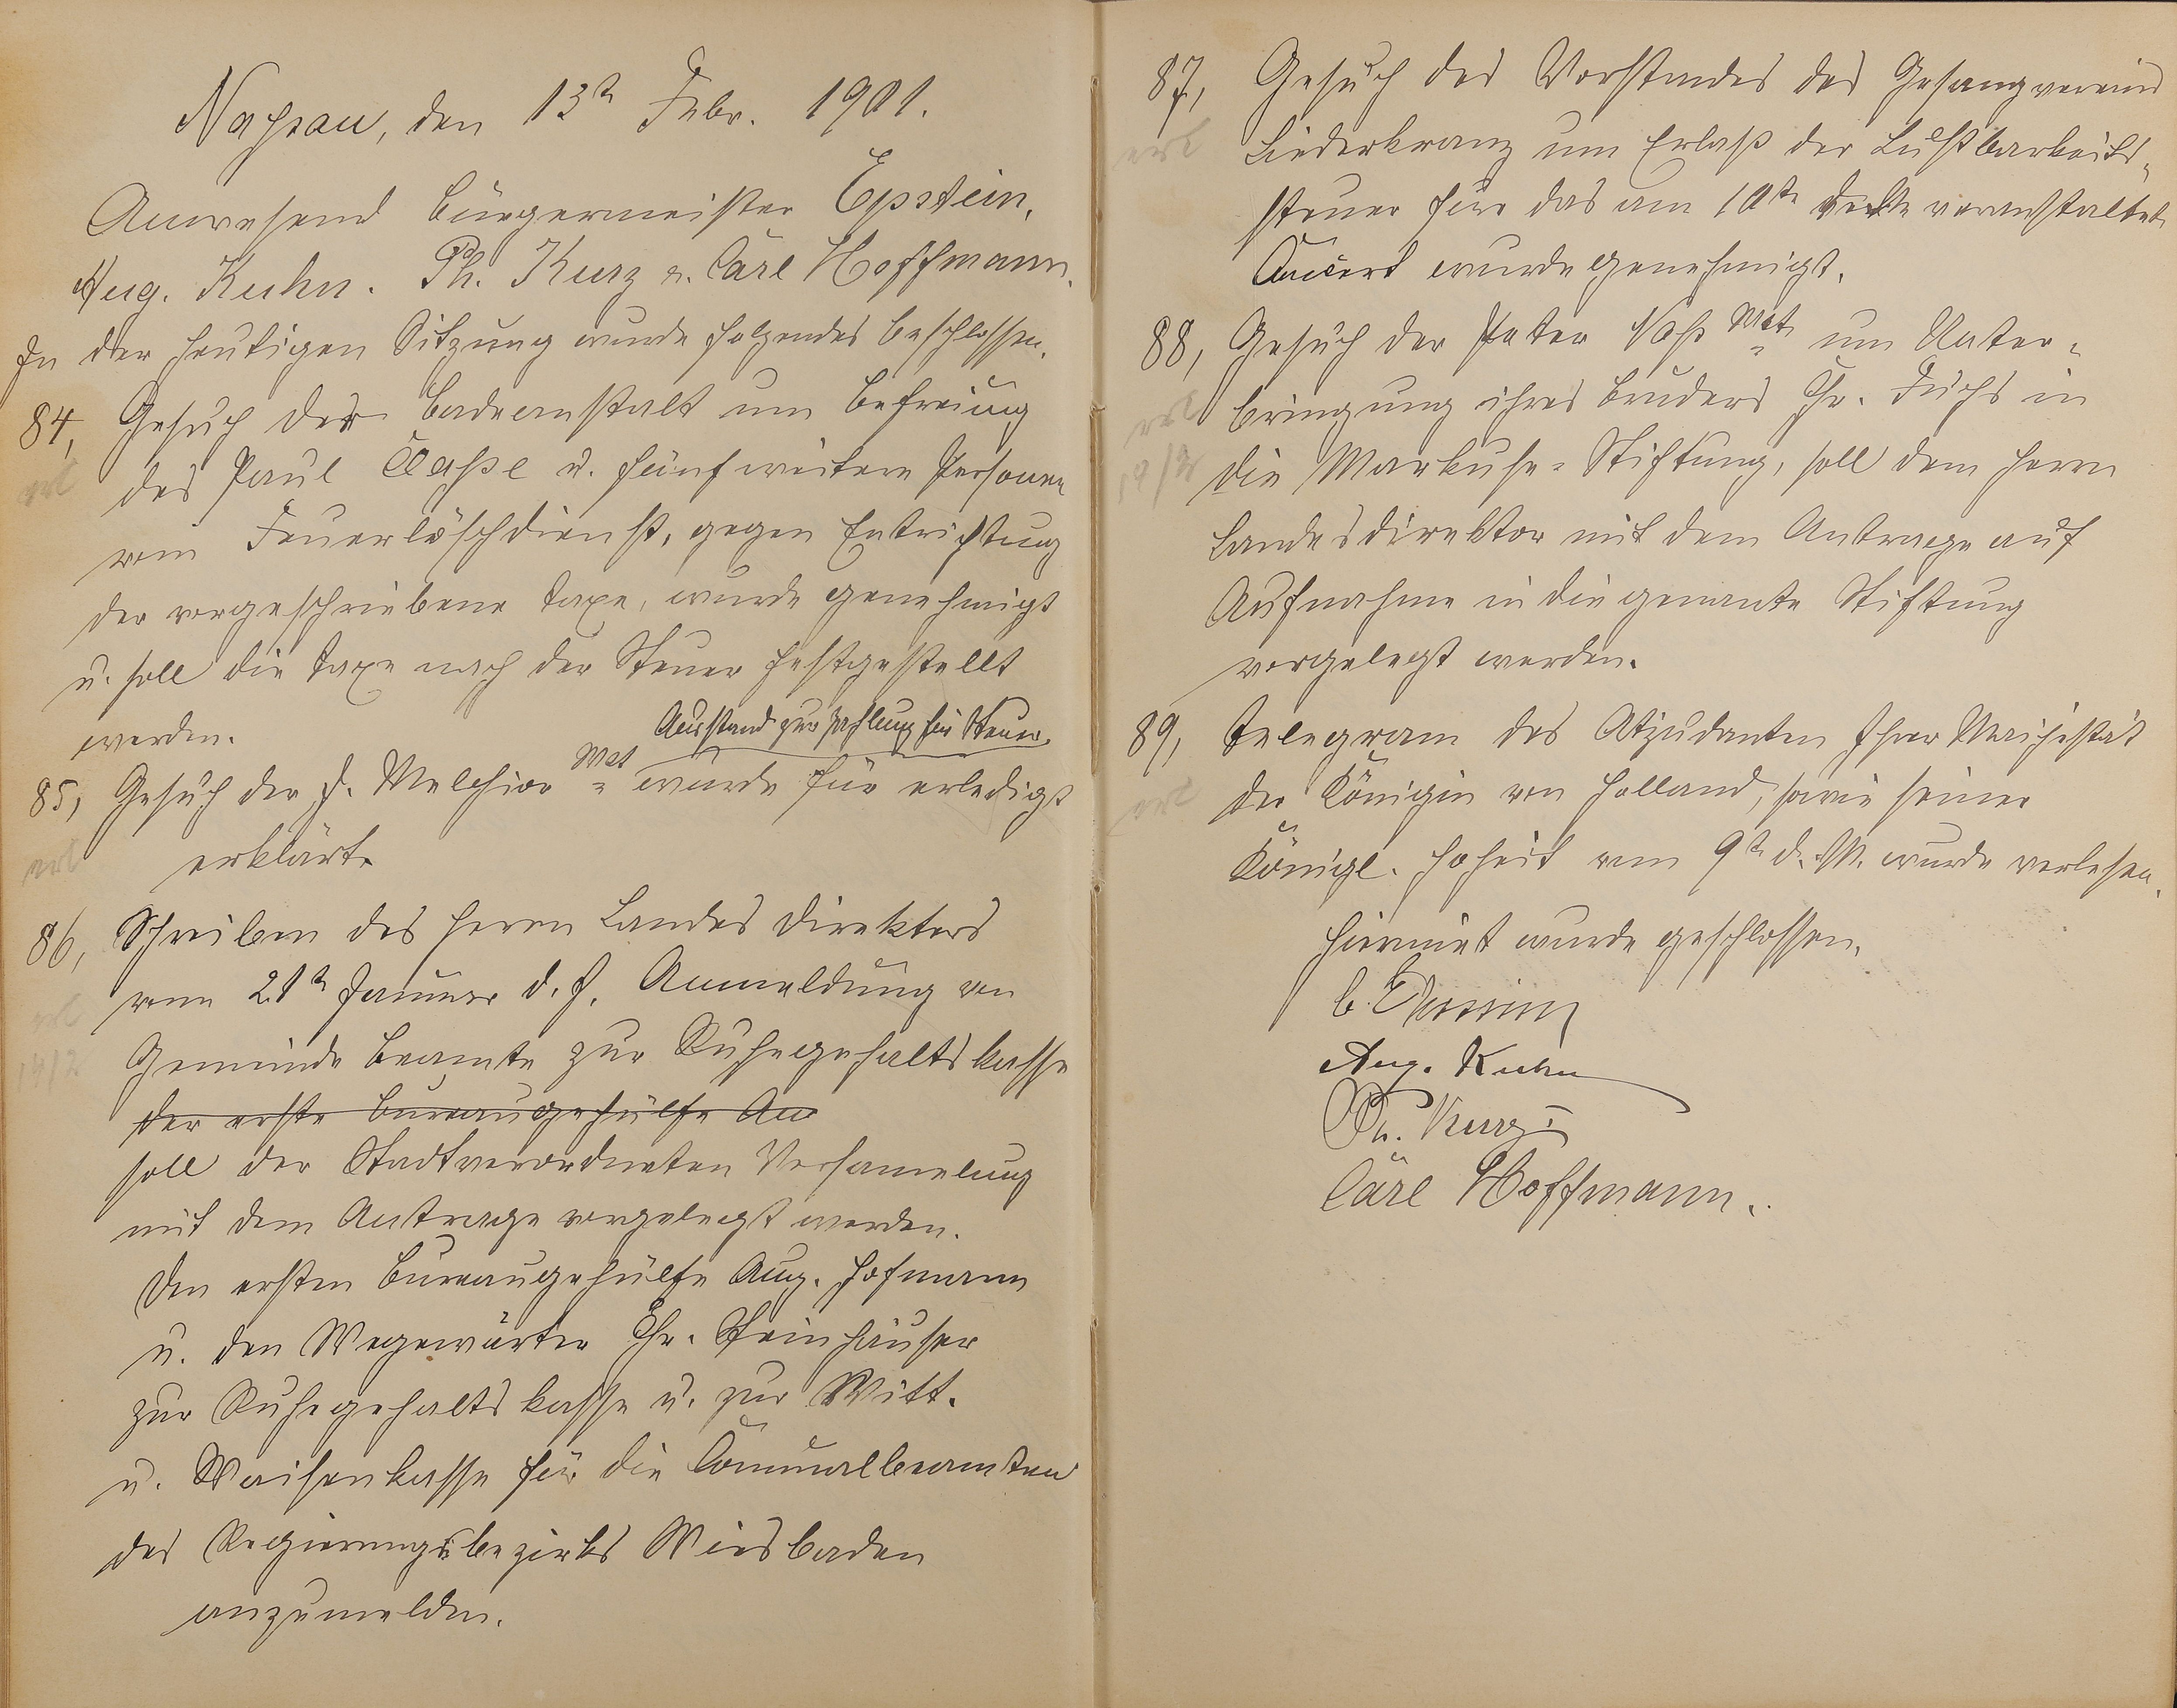 Naßau, den 13t Febr. 1901.
Anwesend Bürgermeister Epstein,
Aug. Kuhn. Ph. Kurz u. Carl Hoffmann.
In der heutigen Sitzung wurde folgendes beschlossen.
84, Gesuch der Badeanstalt um Befreiung
erl
des Paul u. fünf weitere Personen
vom Feuerlöschdienst, gegen Entrichtung
der vorgeschriebene Taxe, wurde genehmigt
u. soll die Taxe nach der Steuer festgestellt
werden.
Ausstand zur Zahlung für Steuer.
85, Gesuch der J. Melchior Wwe wurde für erledigt
erl
erklärt.
86, Schreiben des Herrn Landes Direktors
vom 21t Januar d. J. Anmeldung von
erl
Gemeinde Beamte zur Ruhegehaltskasse
14/2
der erste Bureaugehülfe An
soll der Stadtverordneten Versamelung
mit dem Antrage vorgelegt werden.
Den ersten Bureaugehülfe Aug. Hofmann
u. den Wegewärter Chr. Steinhäuser
zur Ruhegehaltskasse u. zur Witt.
u. Waisenkasse für die Communalbeamten
des Regierungsbezirks Wiesbaden
anzumelden.
87, Gesuch des Vorstandes des Gesangvereins
erl
Liederkranz um Erlaß der Lustbarkeits-
steuer für das am 10te veranstaltet
Concert wurde genehmigt.
88, Gesuch der Peter Wwe um Unter-
erl
bringung ihres Bruders Chr. Fuchs in
die Stiftung, soll dem Herrn
Landesdirektor mit dem Antrage auf
Aufnahme in die genante Stiftung
vorgelegt werden.
89, Telegram des Atjudanten Ihrer Maijestät
erl
der Königin von Holland, sowie seiner
Königl. Hoheit vom 9t d. M. wurde verlesen.
Hiermit wurde geschlossen.
Aug. Kuhn
Ph. Kurz
Carl Hoffmann.